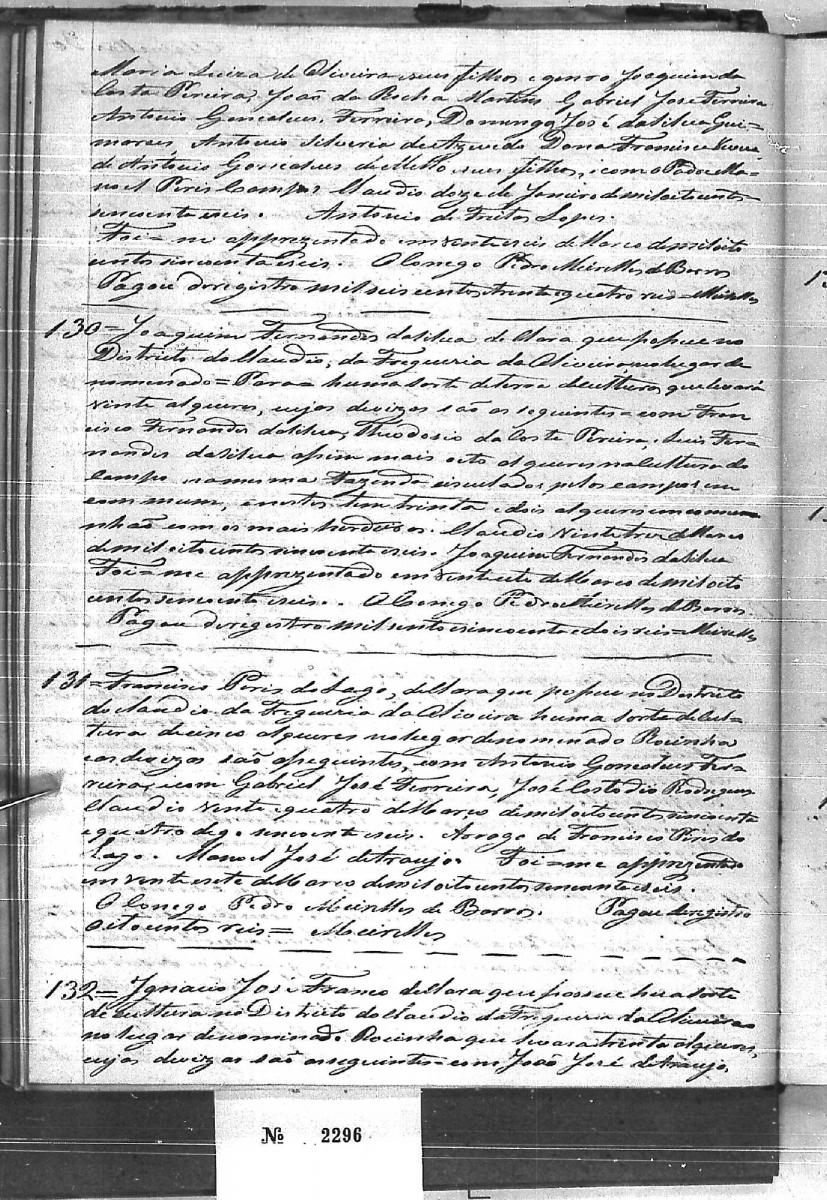 Maria Luiza de Oliveira seus filhos e genro Joaquim da
Costa Pereira, João da Rocha Martins Gabriel José Ferreira
Antonio Gonsalves Ferreira, Domingos José da Silva Gui=
marais, Antonio Silveria de Azevedo Dona Francisca
de Antonio Gonsalves de Mello seus filhos, e com o Padre Ma=
noel Peris Campos Claudio doze de Janeiro de mil oito centos
sincoenta e seis. Antonio de Freitas Lopes.
Foi=me apprezentado em vente e seis de Marco de mil oito
centos sincoenta e seis. O Conego Pedro Meirelles de Barros
Pagou de registro mil seis centos trenta e quatro reis = Meirelles
130= Joaquim Fernandes da Silva declara que possue no
Districto do Claudio, da Freguezia da Oliveira, no lugar de
nominado = Para = huma sorte de terra de cultura, que levará
vinte alqueres, cujas devizas são as seguintes = com Fran
cisco Fernandes da Silva, Theodosio da Costa Pereira, Luis Fer=
nandes da Silva assim mais oito alqueres na Cultura do
Campo na mesma Fazenda e seus campos em
commum, e nestes tem trinta e dois alqueres em comu
nhaõ com os mais herdeiros. Claudio vinte tres de Marco
de mil oito centos sincoenta e seis. Joaquim Fernandes da Silva
Foi=me apprezentado em vente e sete de Marco de mil oito
centos sincoenta e seis. O Conego Pedro Meirelles de Barros.
Pagou de registro mil sento e sincoenta e dois reis = Meirelles
131= Francisco Peris do Lago, declara que possue no Districto
do Claudio da Freguezia da Oliveira huma sorte de Cul=
tura de cinco alqueres no lugar denominado Rocinha
cas devizas são as seguintes, com Antonio Gonsalves Fer=
reira, e com Gabriel José Ferreira, José Custodio Rodrigues
Claudio vente e quatro de Marco de mil oito centos sincoenta
e quatro digo sincoenta e seis. Arrogo de Francisco Peris do
Lago. Manoel José de Araujo. Foi=me apprezentado
em vente e sete de Marco de mil oito centos sincoenta e seis.
O Conego Pedro Meirelles de Barros. Pagou de registro
oito centos reis = Meirelles
132= Ignacio José Franco declara que possue hua sorte
de cultura no Districto do Claudio da Freguezia da Oliveira
no lugar denominado Rocinha que levara trinta alqueres,
cujas devizas são as seguintes = com João José de Araujo,
No 2296